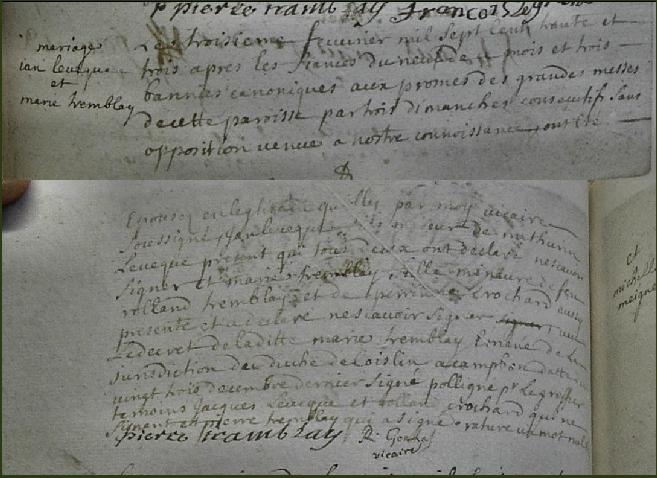 pierre tramblay François Le
mariage
ian levesque
et
marie tremblay
Les troisieme fevvrier mil Sept Cent trante et
trois apres les fiances du neuf de mois et trois
bannies canoniques aux promes des grandes messes
de cette paroisse par trois dimanches consecutifs sans
opposition venue a nostre connoissance ont été
Epousez en legitime qu par moy vicaire
soussigné ian leveque fils m de mathurin
Leveque present qui tous deux ont declaré ne scavoir
signer et marie tremblay fille mineure de feu
rolland tremblay et de perrinne crochard aussy
presente et a declaré ne scavoir signer
Le decret de laditte marie tremblay Emané de la
jurisdiction du duché de Coislin a campbon datte du
vingt trois decembre dernier signé polligné pr Le greffier
temoins jacques Leveque et rollan crochard qui ne
signent et pierre tremblay qui a signé rature un mot nulle
pierre tramblay
vicaire
et
michelle